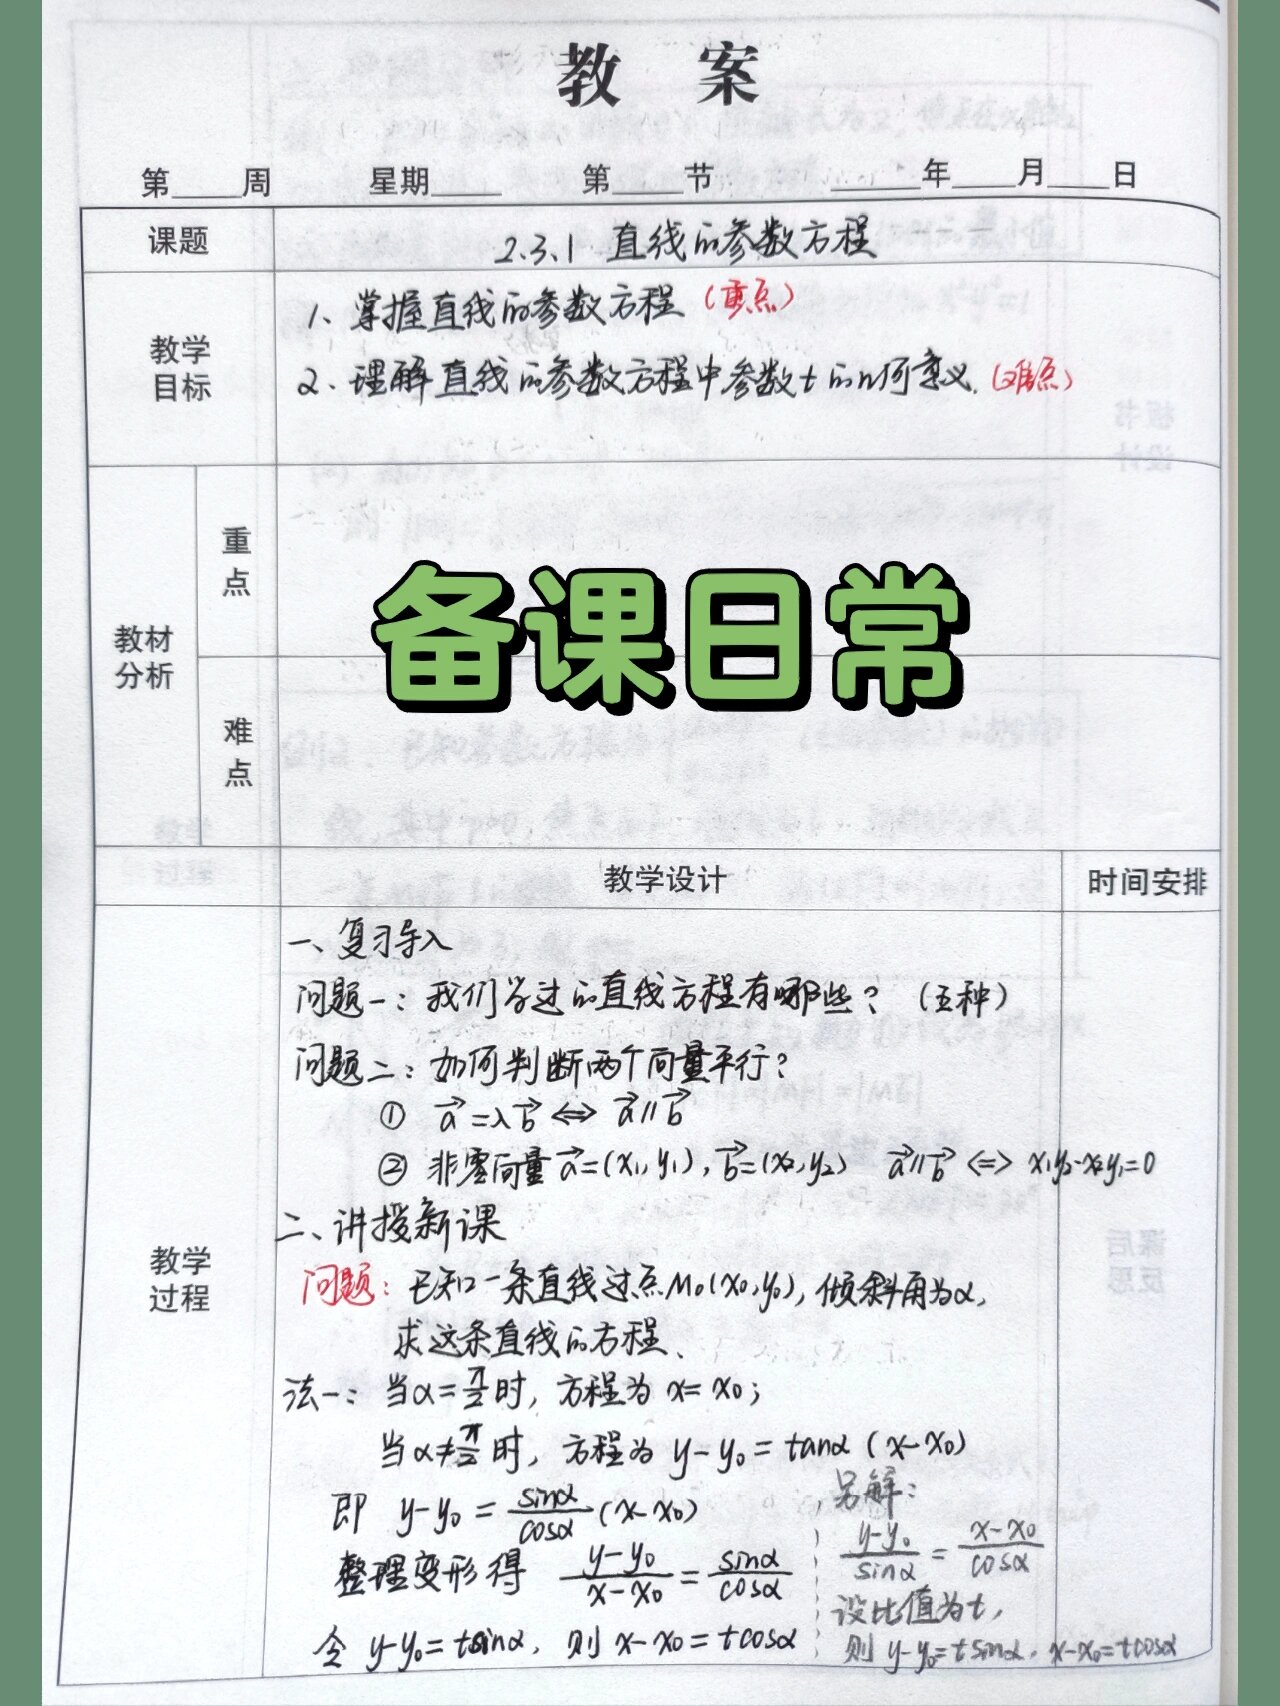 教 案
第____周 星期____ 第____节 ____年____月____日
课题 2.3.1 直线的参数方程
教学目标
1、掌握直线的参数方程（重点）
2、理解直线的参数方程中参数t的几何意义.（难点）
教材分析
重点
备课日常
难点
教学设计 时间安排
教学过程
一、复习导入
问题一：我们学过的直线方程有哪些？（五种）
问题二：如何判断两个向量平行？
① a⃗=λb⃗ ⇔ a⃗∥b⃗
② 非零向量a⃗=(x₁,y₁), b⃗=(x₂,y₂) a⃗∥b⃗ ⇔ x₁y₂-x₂y₁=0
二、讲授新课
问题：已知一条直线过点M₀(x₀,y₀), 倾斜角为α,
求这条直线的方程.
法一：当α=π/2时, 方程为 x=x₀;
当α≠π/2时, 方程为 y-y₀=tanα(x-x₀)
即 y-y₀=sinα/cosα(x-x₀)
整理变形得 (y-y₀)/(x-x₀)=sinα/cosα
令 y-y₀=tsinα, 则 x-x₀=tcosα
另解：
(y-y₀)/sinα=(x-x₀)/cosα
设比值为t,
则 y-y₀=tsinα, x-x₀=tcosα